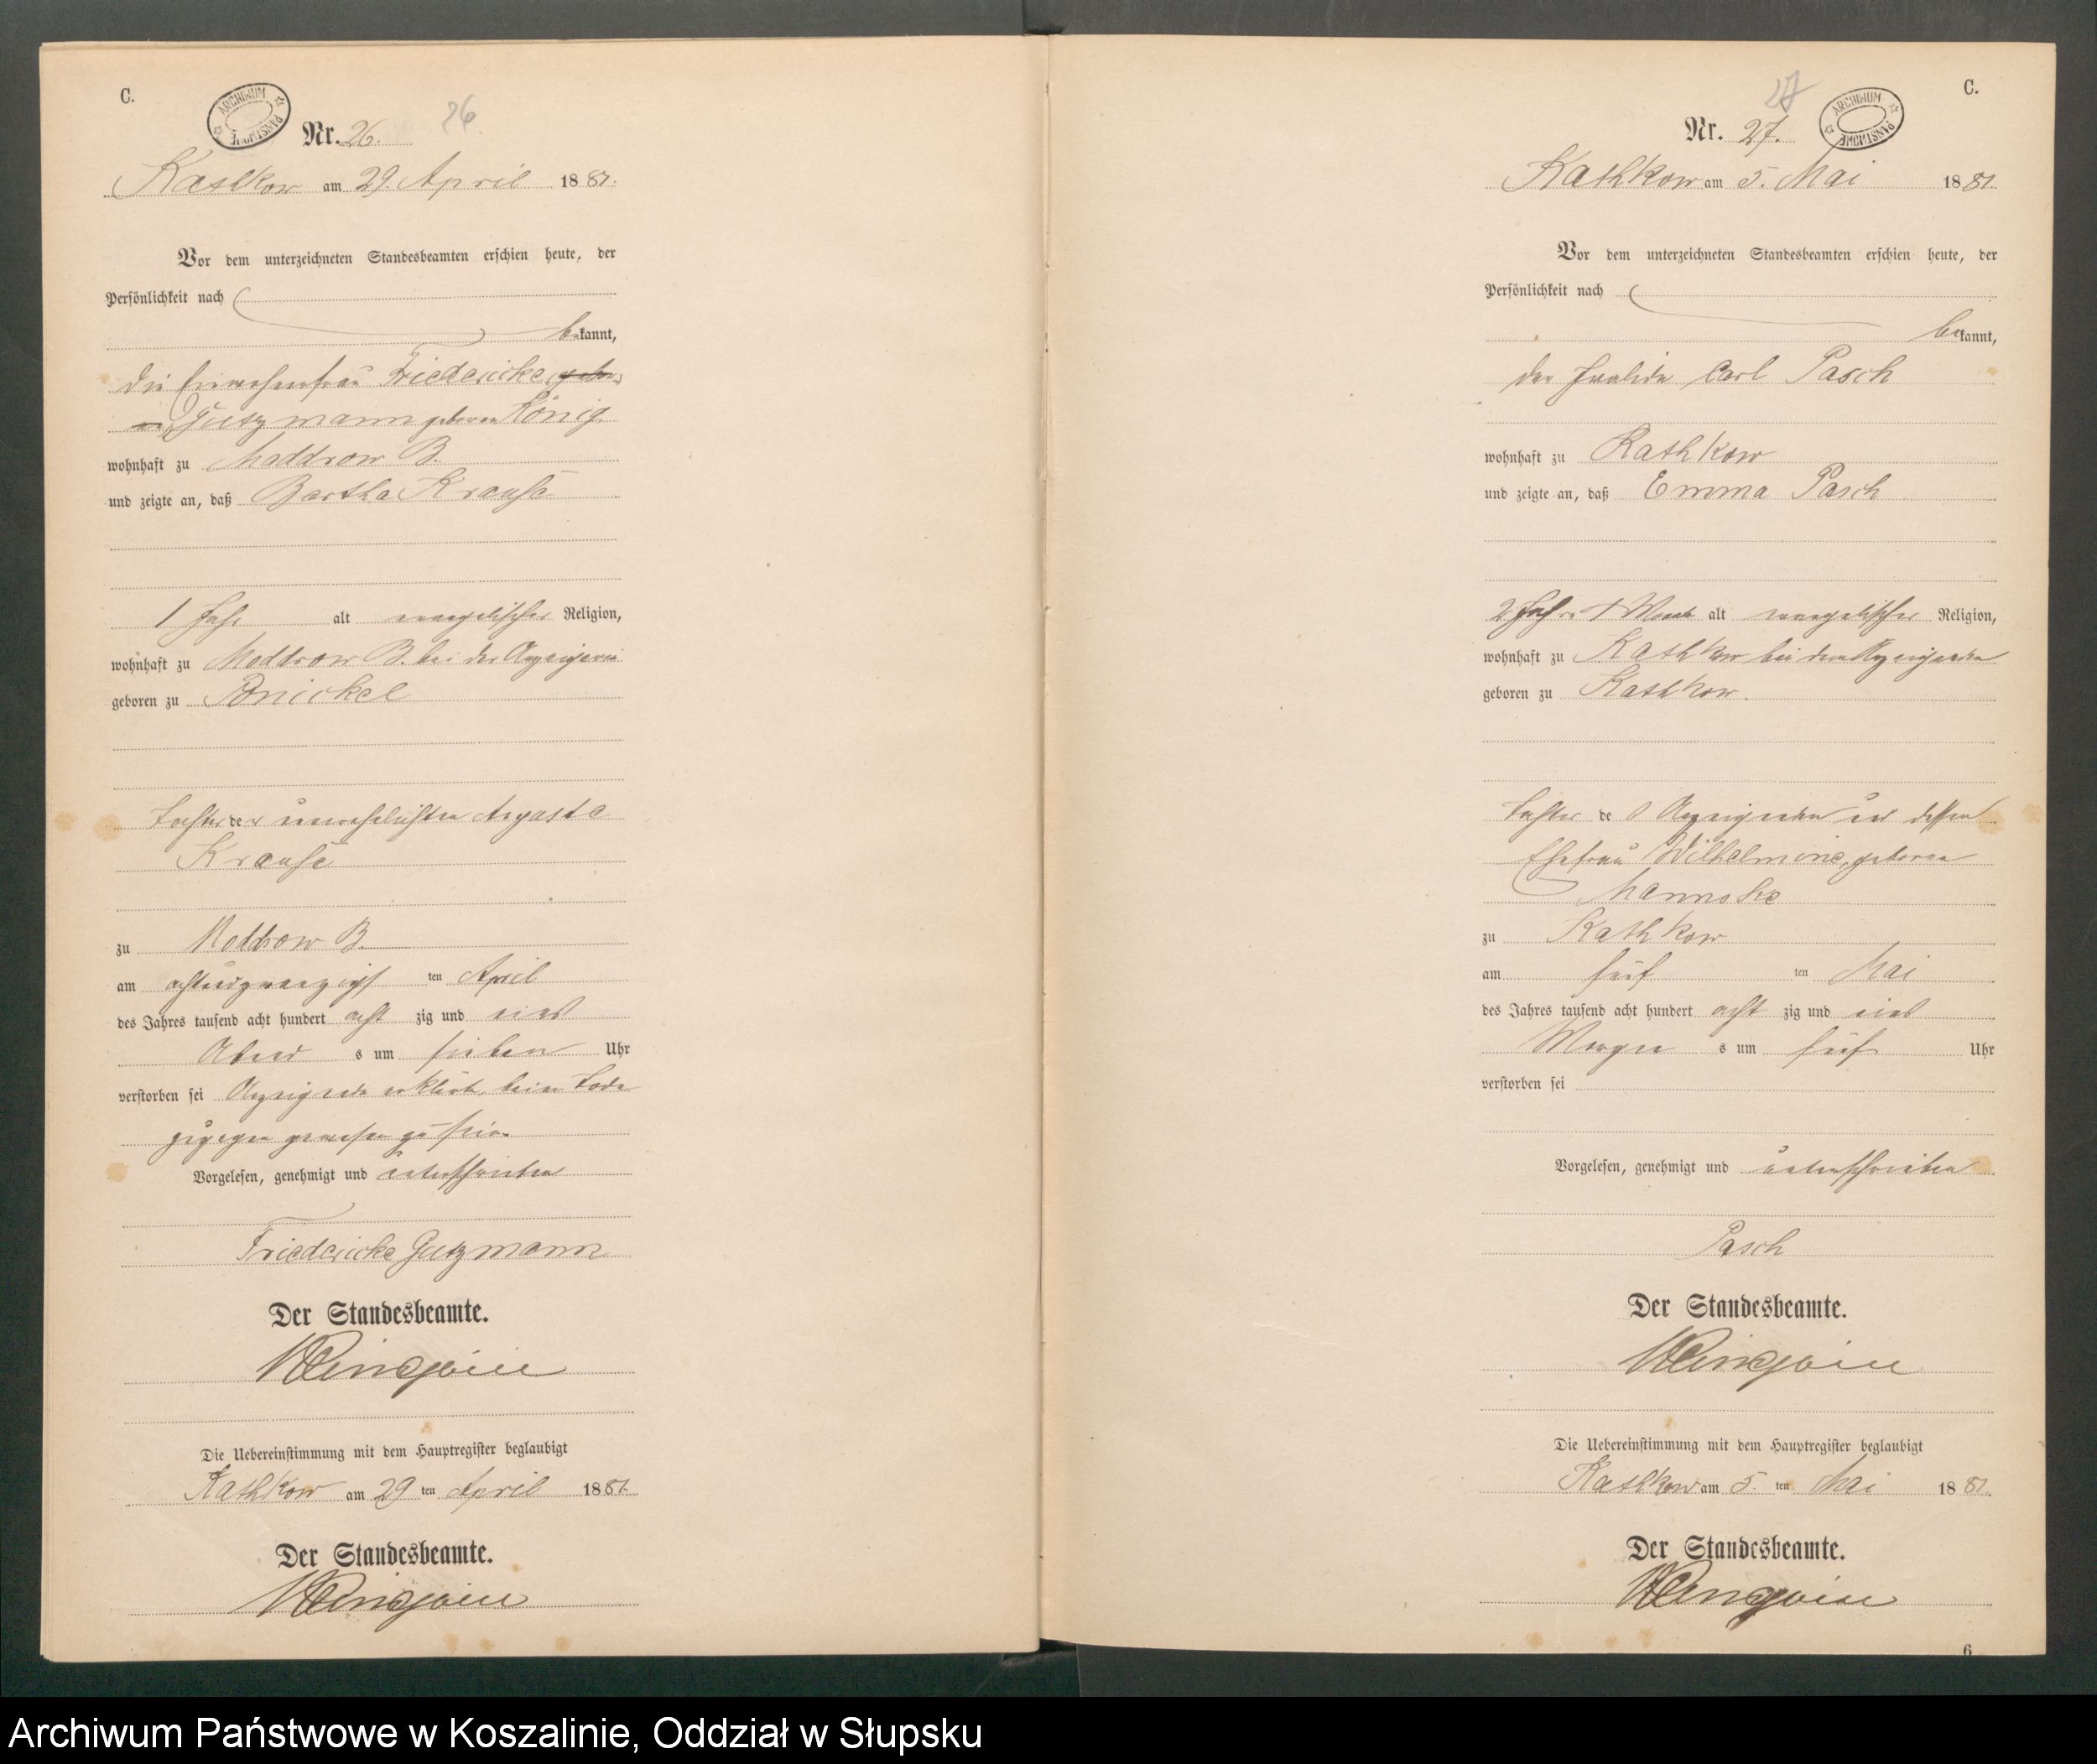 C.
ARCHIWUM PAŃSTWOWE
Nr. 26.
26.
Kathkow am 29. April 1881.
Vor dem unterzeichneten Standesbeamten erschien heute, der
Persönlichkeit nach
bekannt,
die Einwohnerfrau Friedericke gebo
Gutzmann geboren König
wohnhaft zu Moddrow B.
und zeigte an, daß Bertha Krause
1 Jahr alt evangelischer Religion,
wohnhaft zu Moddrow B. bei der Anzeigerin
geboren zu Ponickel
Tochter der unverehelichten Auguste
Krause
zu Moddrow B.
am achtundzwanzigsten April
des Jahres tausend acht hundert achtzig und eins
Abends um sieben Uhr
verstorben sei Anzeigende erklärte, beim Tode
zugegen gewesen zu sein.
Vorgelesen, genehmigt und unterschrieben
Friedericke Gutzmann
Der Standesbeamte.
Die Uebereinstimmung mit dem Hauptregister beglaubigt
Kathkow am 29ten April 1881.
Der Standesbeamte.
C.
27
ARCHIWUM PAŃSTWOWE
Nr. 27.
Kathkow am 5. Mai 1881.
Vor dem unterzeichneten Standesbeamten erschien heute, der
Persönlichkeit nach
bekannt,
der Invalide Carl Pasch
wohnhaft zu Kathkow
und zeigte an, daß Emma Pasch
2 Jahre 1 Monat alt evangelischer Religion,
wohnhaft zu Kathkow bei dem Anzeigenden
geboren zu Kathkow.
Tochter des Anzeigenden und dessen
Ehefrau Wilhelmine, geboren
zu Kathkow
am fünften Mai
des Jahres tausend acht hundert achtzig und eins
Morgens um fünf Uhr
verstorben sei
Vorgelesen, genehmigt und unterschrieben
Pasch
Der Standesbeamte.
Die Uebereinstimmung mit dem Hauptregister beglaubigt
Kathkow am 5.ten Mai 1881.
Der Standesbeamte.
6
Archiwum Państwowe w Koszalinie, Oddział w Słupsku